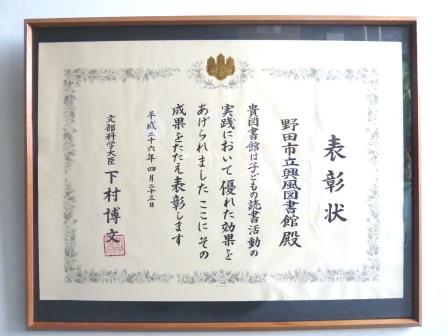 表彰状
野田市立興風図書館殿
貴図書館は子どもの読書活動の
実践において優れた効果を
あげられました ここにその
成果をたたえ表彰します
平成二十六年四月二十三日
文部科学大臣 下村博文